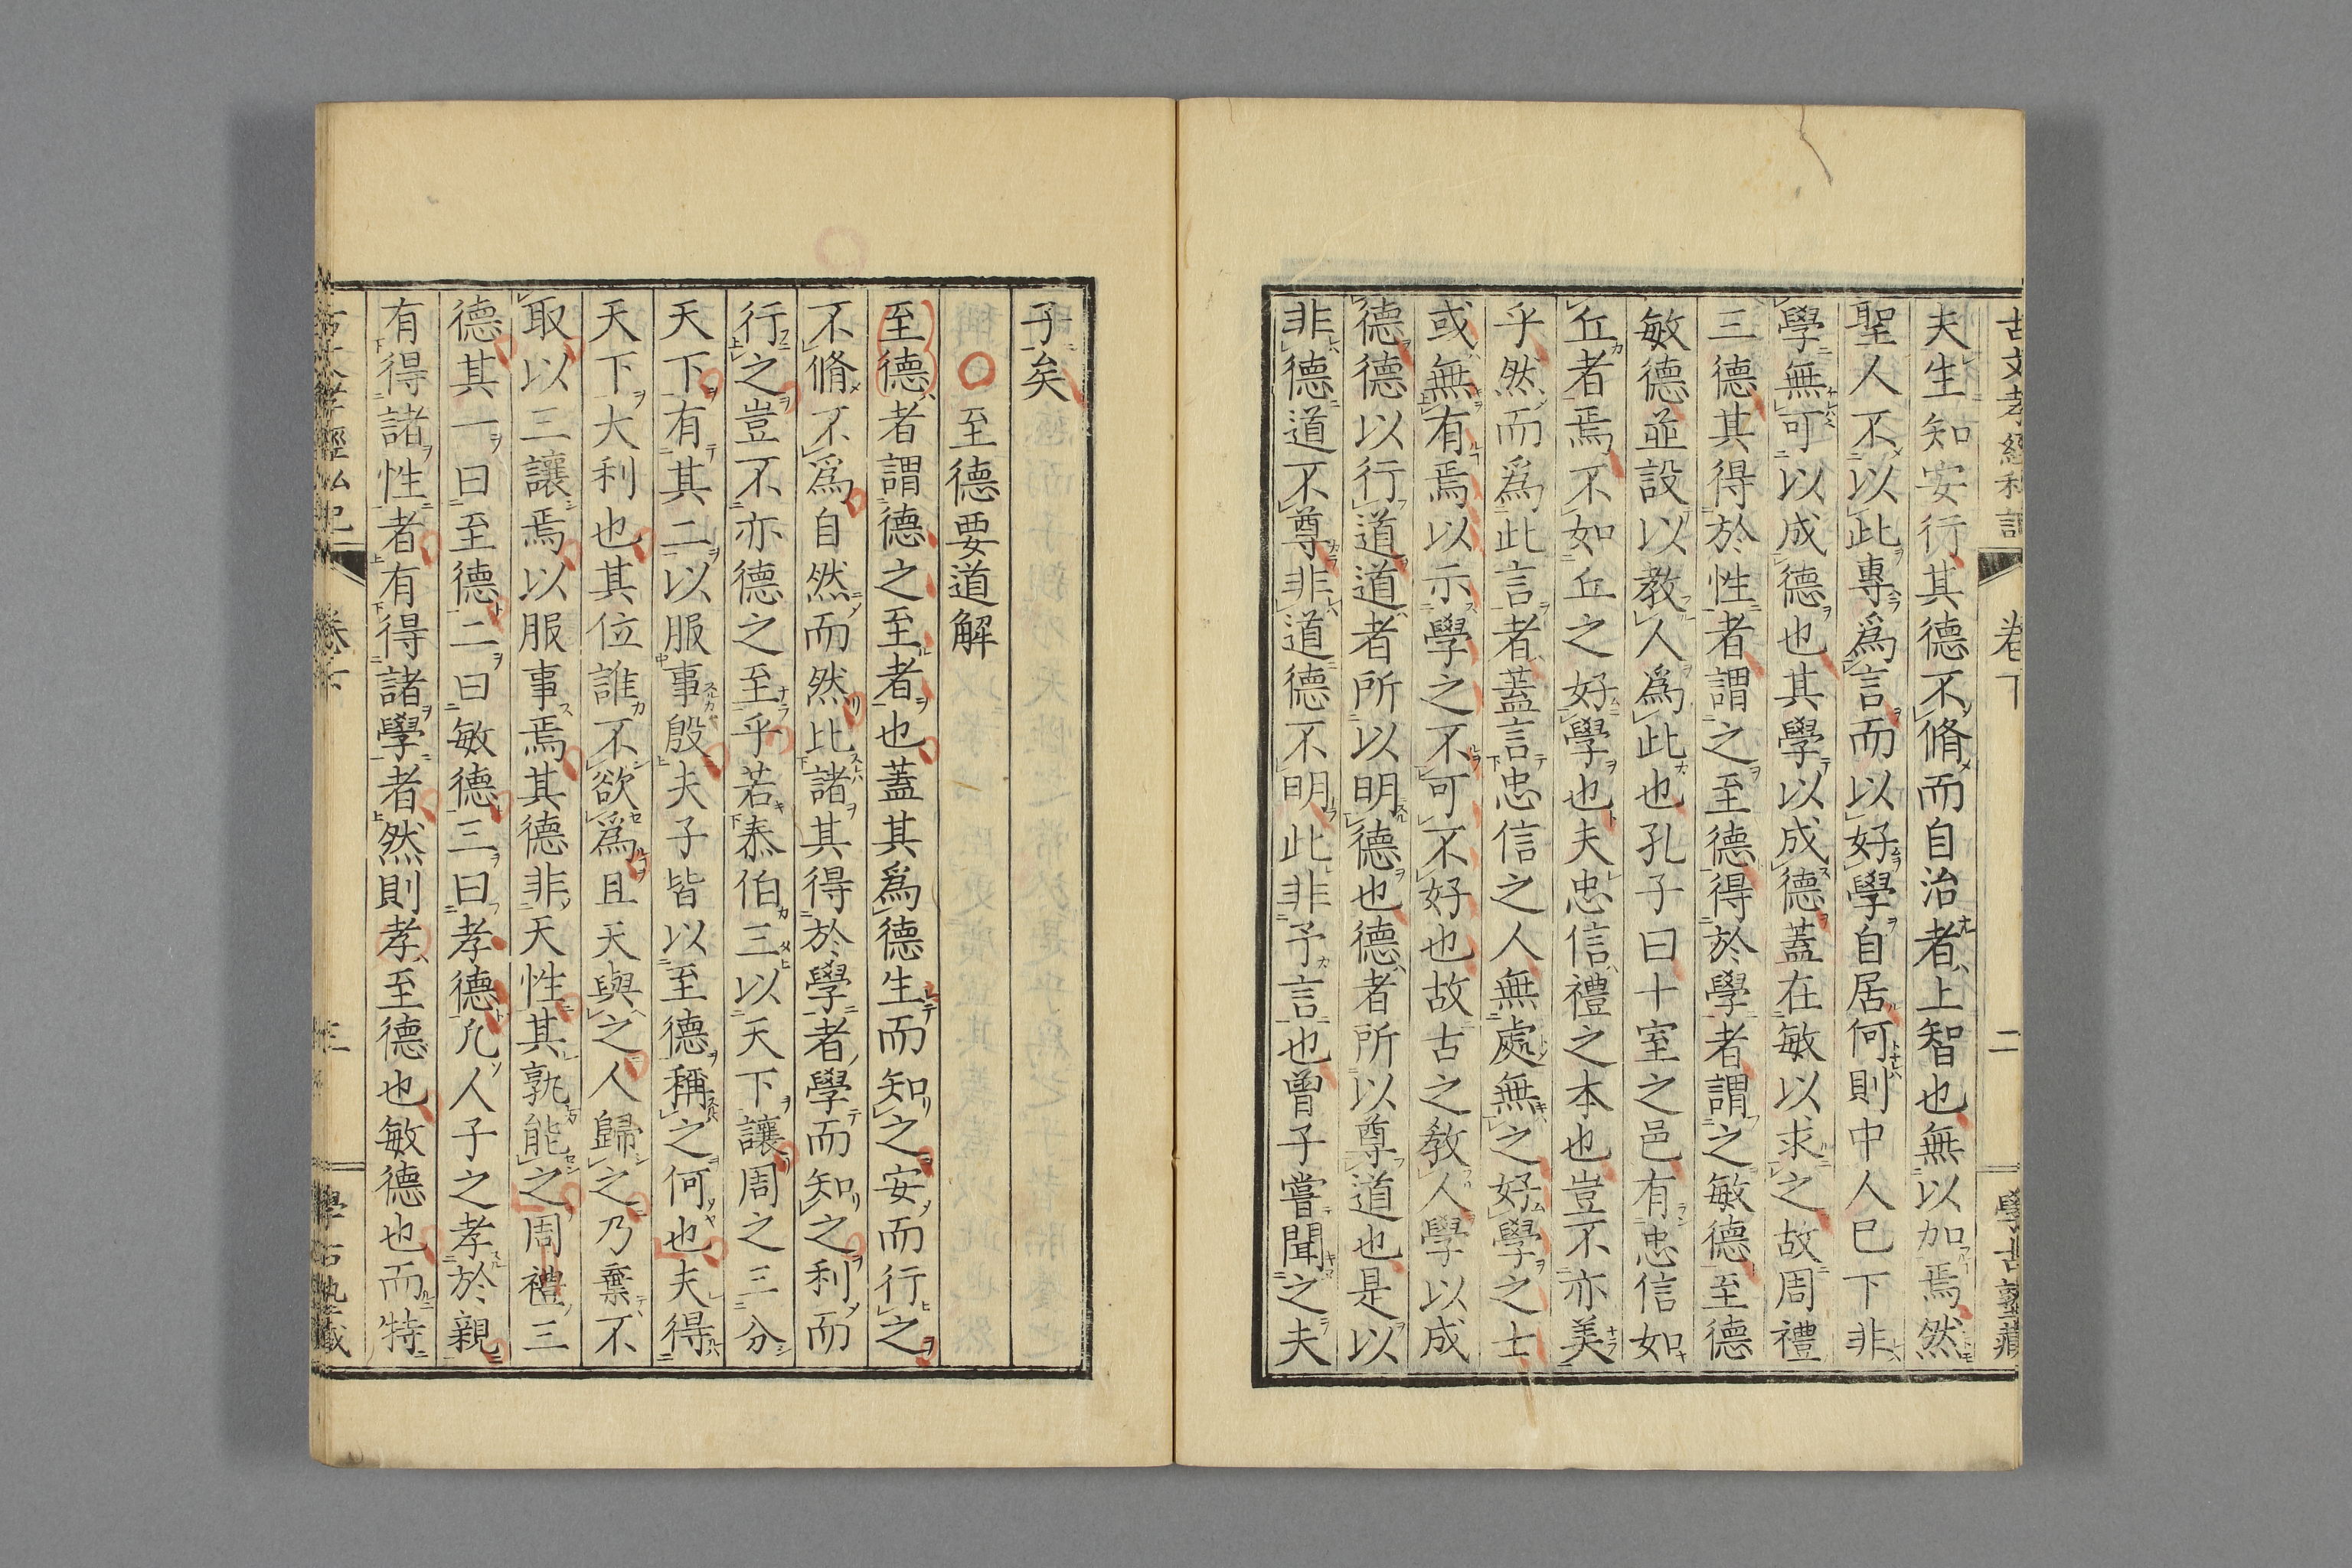 古文孝經私記 卷下 二 學古塾藏
夫生知安行其德不脩而自治者上智也無以加焉然
聖人不以此專爲言而以好學自居何則中人已下非
學無可以成德也其學以成德蓋在敏以求之故周禮
三德其得於性者謂之至德得於學者謂之敏德至德
敏德並設以教人爲此也孔子曰十室之邑有忠信如
丘者焉不如丘之好學也夫忠信禮之本也豈不亦美
乎然而爲此言者蓋言忠信之人無處無之好學之士
或無有焉以示學之不可不好也故古之教人學以成
德德以行道道者所以明德也德者所以尊道也是以
非德道不尊非道德不明此非予言也曾子嘗聞之夫
子矣
至德要道解
至德者謂德之至者也蓋其爲德生而知之安而行之
不脩不爲自然而然比諸其得於學者學而知之利而
行之豈不亦德之至乎若泰伯三以天下讓周之三分
天下有其二以服事殷夫子皆以至德稱之何也夫得
天下大利也其位誰不欲爲且天與之人歸之乃棄不
取以三讓焉以服事焉其德非天性其孰能之周禮三
德其一曰至德二曰敏德三曰孝德凡人子之孝於親
有得諸性者有得諸學者然則孝至德也敏德也而特
古文孝經私記 卷下 三 學古塾藏